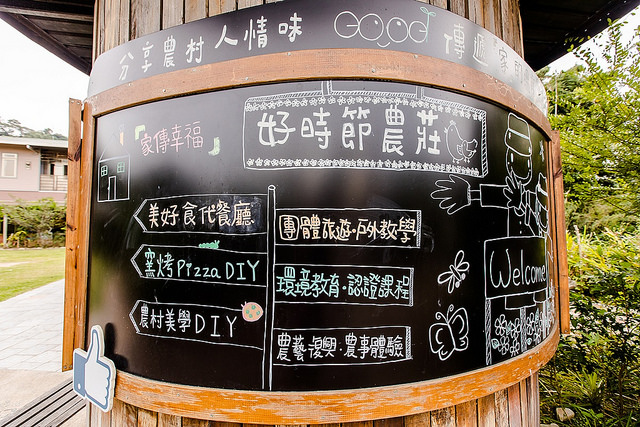 分享農村人情味 GOOD 傳遞家
家傳幸福
好時節農莊
美好食代餐廳
窯烤Pizza DIY
農村美學DIY
團體旅遊·戶外教學
環境教育·認證課程
農藝復興·農事體驗
Welcome